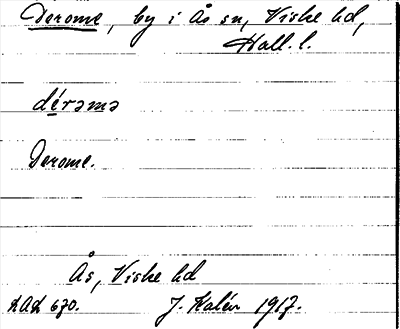 Derome, by i Ås sn, Viske hd,
Hall. l.
dérəmə
Derome.
Ås, Viske hd
LAL 670. J. Kalén 1917.